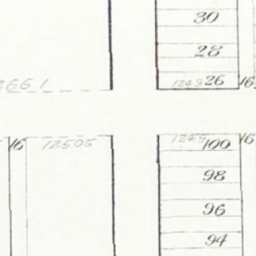 30
28
2661 1249 26 16
16 12505 1249 100 16
98
96
94